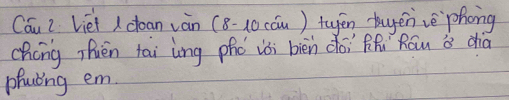 Câu 2. Viết 1 đoạn văn (8-10 câu) tuyên truyền về phòng
chống thiên tai ứng phó với biến đổi khí hậu ở địa
phương em.